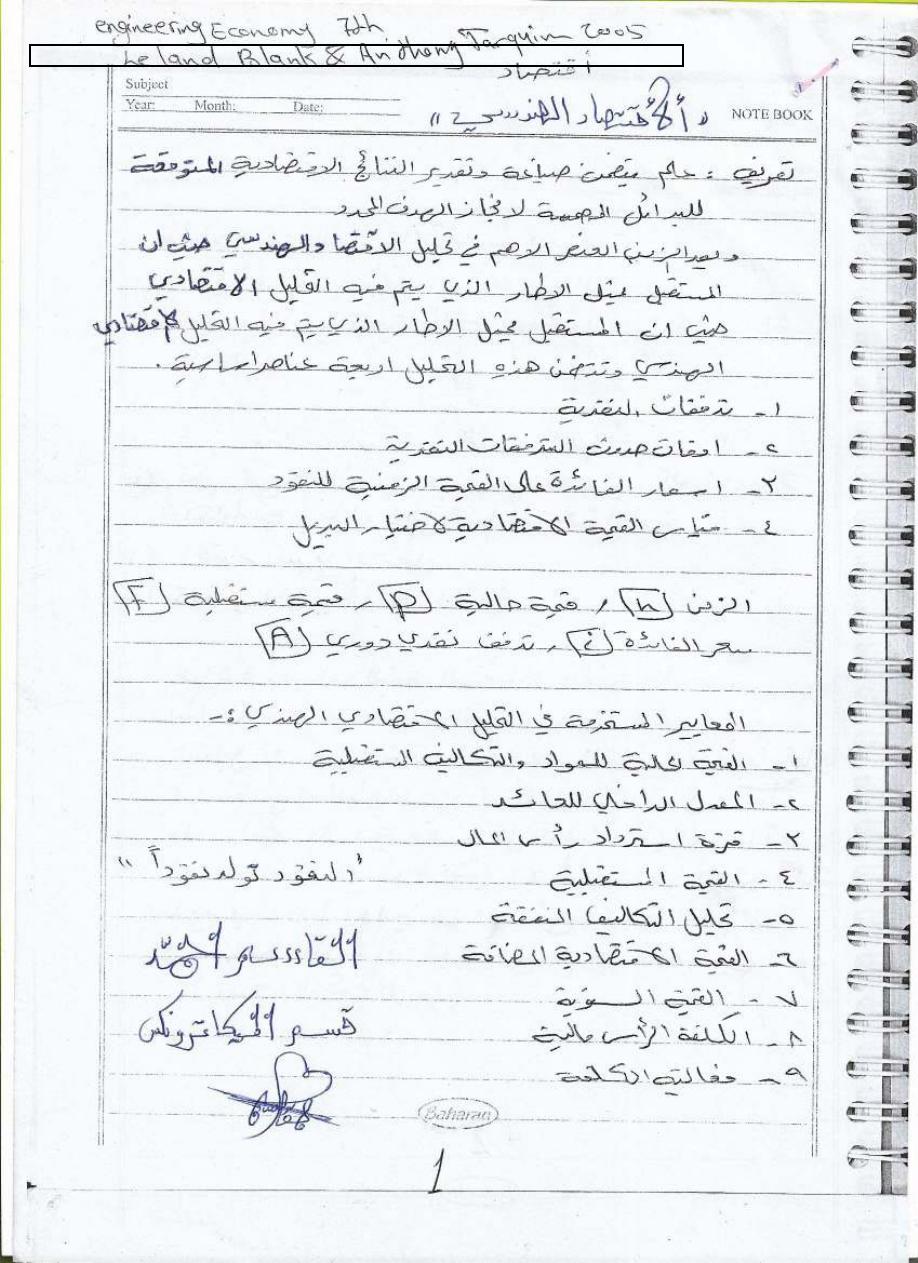 engineering Economy 7th
Leland Blank & Anthony Tarquim 2005
أقتصاد
Subject
Year: Month: Date:
"الأقتصاد الهندسي"
NOTE BOOK
تعريف : علم يتضمن صياغة وتقدير النتائج الاقتصادية المتوقعة
للبدائل المصممة لانجاز الهدف المحدد
ويعد الزمن العنصر الاهم في تحليل الاقتصاد الهندسي حيث ان
المستقبل يمثل الاطار الذي يتم فيه التحليل الاقتصادي
حيث ان المستقبل يمثل الاطار الذي يتم فيه التحليل الاقتصادي
الهندسي وتتضمن هذه التحليل اربعة عناصر اساسية .
١- تدفقات النقدية
٢- اوقات حدوث التدفقات النقدية
٣- اسعار الفائدة على القيمة الزمنية للنقود
٤- مقياس القيمة الاقتصادية لاختيار البديل
الزمن n , قيمة حالية P , قيمة مستقبلية F
سعر الفائدة i , تدفق نقدي دوري A
المعايير المستخدمة في التحليل الاقتصادي الهندسي :-
١- القيمة الحالية للمواد والتكاليف المستقبلية
٢- المعدل الداخلي للعائد
٣- فترة استرداد رأس المال
٤- القيمة المستقبلية
"النقود تولد نقوداً"
٥- تحليل التكاليف المنفعة
٦- القيمة الاقتصادية المضافة
القاسم أحمد
٧- القيمة السنوية
٨- الكلفة الرأس مالية
قسم الميكاترونكس
٩- فعالية الكلفة
Baharan
1